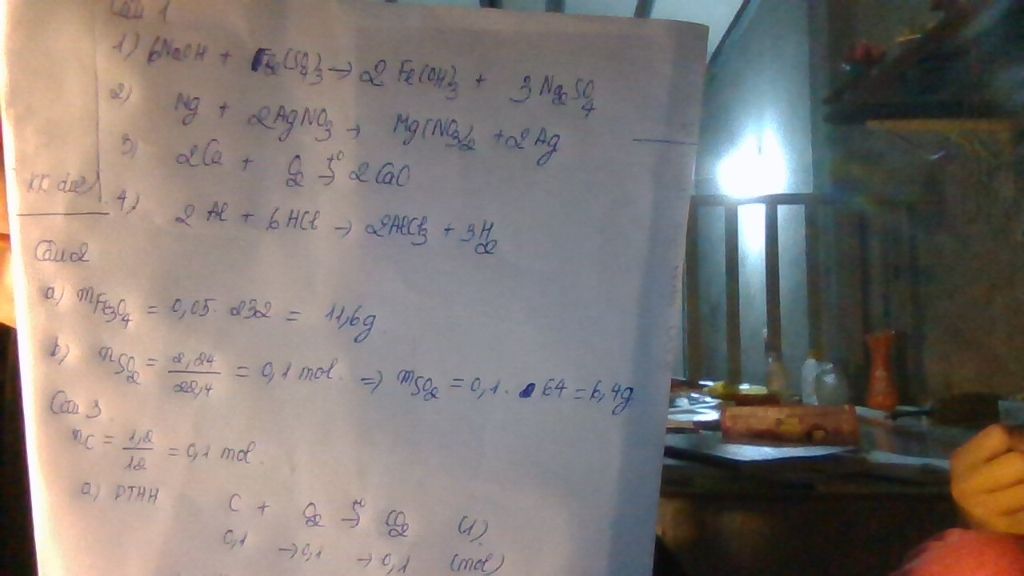 Câu 1
1) 6NaOH + Fe₂(SO₄)₃ → 2Fe(OH)₃ + 3Na₂SO₄
2) Mg + 2AgNO₃ → Mg(NO₃)₂ + 2Ag
3) 2Ca + O₂ t° → 2CaO
4) 2Al + 6HCl → 2AlCl₃ + 3H₂
Câu 2
a) mFe₃O₄ = 0,05. 232 = 11,6g
b) nSO₂ = 2,24/22,4 = 0,1 mol. => mSO₂ = 0,1. 64 = 6,4g
Câu 3
nC = 1,2/12 = 0,1 mol
a) PTHH C + O₂ t° → CO₂ (1)
0,1 → 0,1 → 0,1 (mol)